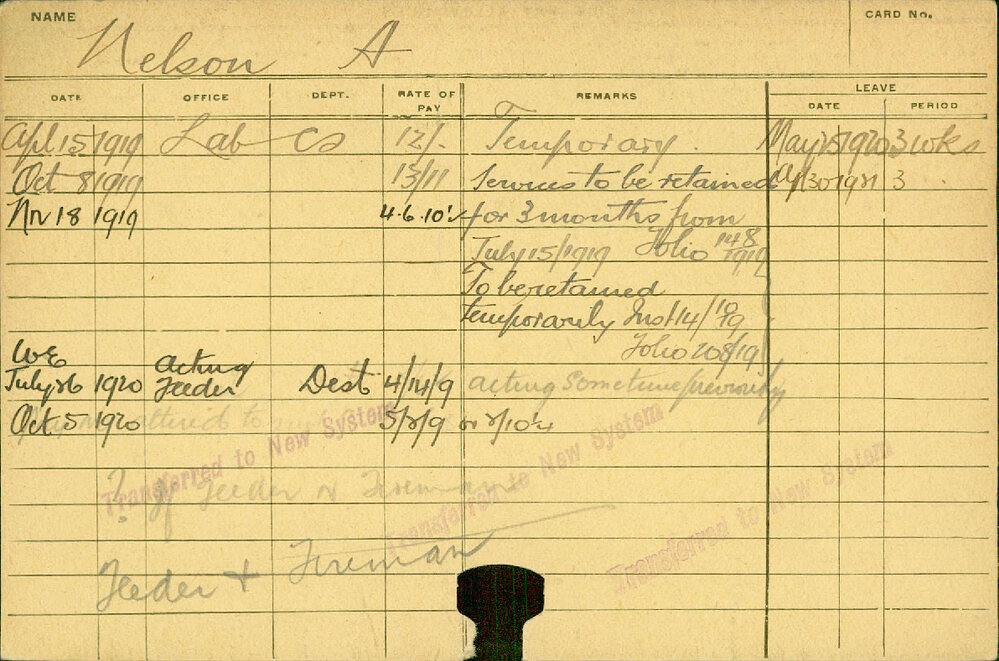 NAME
CARD No.
Nelson A
DATE OFFICE DEPT. RATE OF PAY REMARKS LEAVE
DATE PERIOD
Apl 15 1919 Lab CS 12/- Temporary. May 15 1920 3 wks
Oct 8 1919 13/11 Services to be retained Ap 30 1921 3
Nov 18 1919 4.6.10½ for 3 months from
July 15/1919 Folio 148/1919
To be retained
temporarily Inst 14/10/19
Folio 208/19
WE acting
July 26 1920 Feeder Dest 4/14/9 acting sometime previously
Oct 5 1920 5/2/9 or 2/10¼
Transferred to New System
Transferred to New System
Transferred to New System
? if Feeder or Fireman
Feeder + Fireman